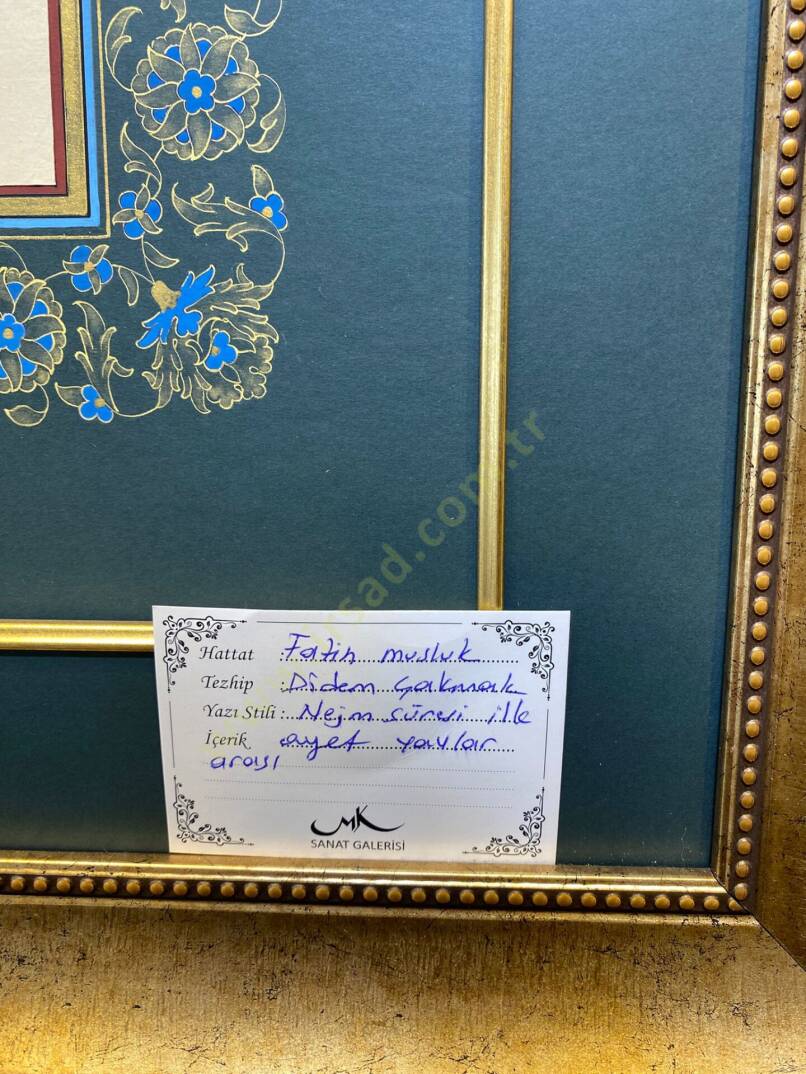 Hattat : Fatih musluk
Tezhip : Didem Çakmak
Yazı Stili : Nejm sûresi ilk
İçerik ayet yaylar
arası
MK
SANAT GALERİSİ
sad.com.tr